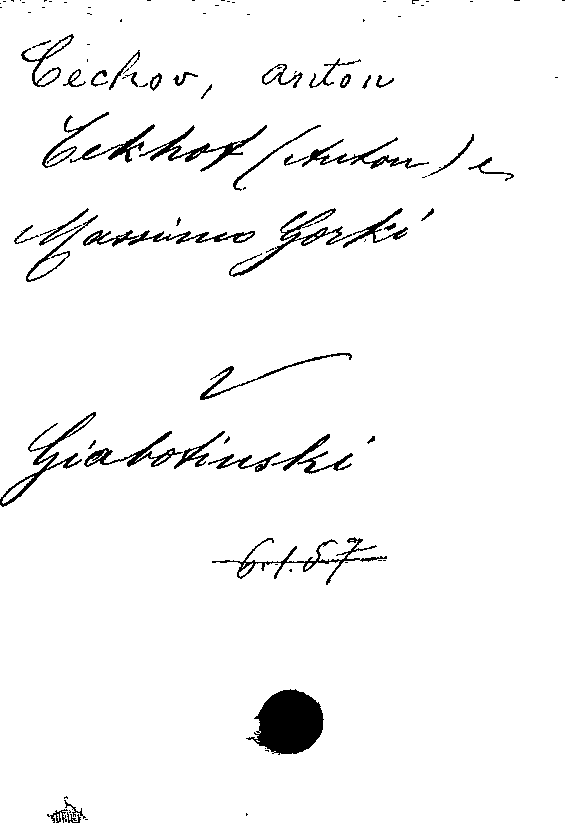 Cechov, Anton
Cekhof (Anton) e
Massimo Gorki
V
Giabotinski
6.1.57